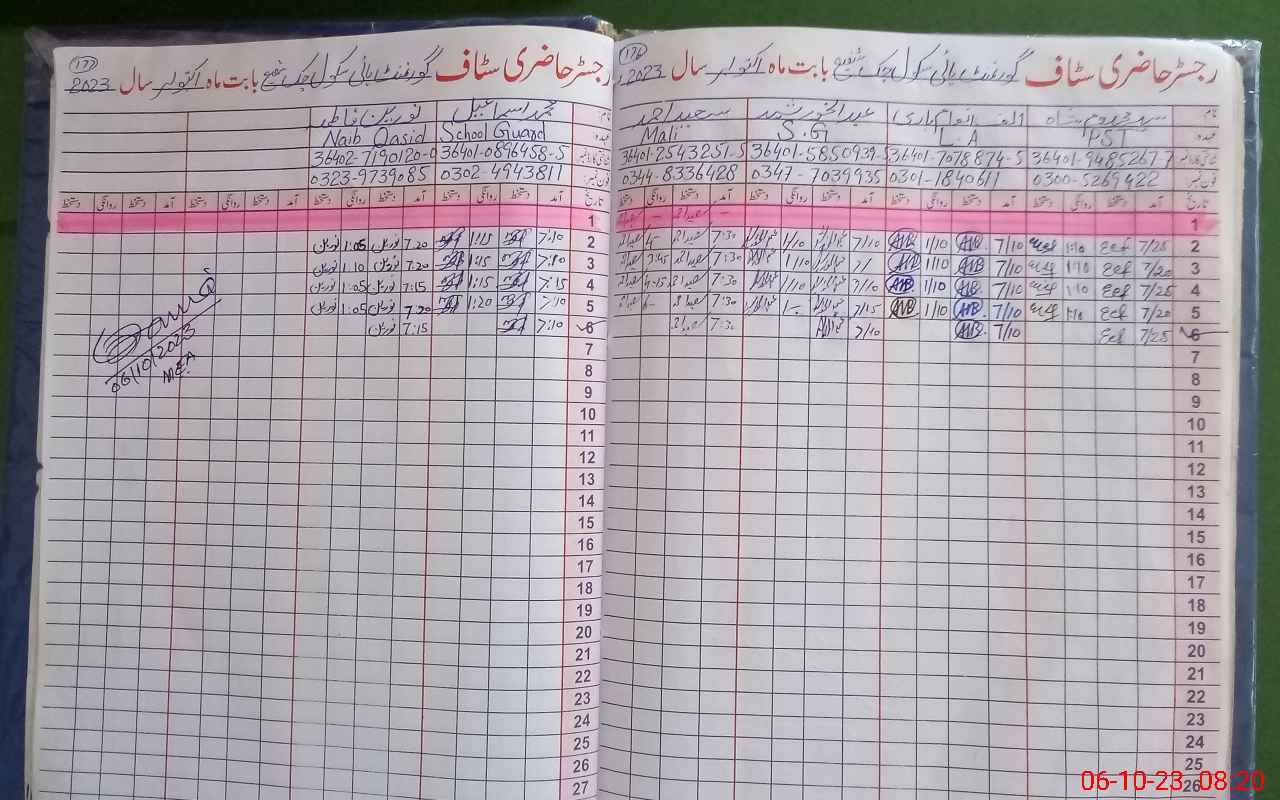 176
رجسٹر حاضری سٹاف گورنمنٹ ہائی سکول چک شفیع بابت ماہ اکتوبر سال 2023
نام سید مخدوم شاہ عبدالخورشید سعید احمد
عہدہ PST L.A S.G Mali
36401-9485267-7 36401-7078874-5 36401-5850939-5 36401-2543251-5
فون نمبر 0300-5269422 0301-1840611 0347-7039935 0344-8336428
تاریخ آمد دستخط روانگی دستخط آمد دستخط روانگی دستخط آمد دستخط روانگی دستخط آمد دستخط روانگی دستخط
1
2 7/25 1:10 7/10 1/10 7/10 1/10 7:30
3 7/20 1:10 7/10 1/10 1/10 7:30 3:45
4 7/25 1:10 7/10 1/10 7/10 1/10 7:30 4:15
5 7/20 1:10 7/10 1/10 7/15 7:30
6 7/25 7/10 7/10 7:30
7
8
9
10
11
12
13
14
15
16
17
18
19
20
21
22
23
24
25
26
177
رجسٹر حاضری سٹاف گورنمنٹ ہائی سکول چک شفیع بابت ماہ اکتوبر سال 2023
نام محمد اسماعیل نورین فاطمہ
عہدہ School Guard Naib Qasid
36401-0896458-5 36402-7190120-0
فون نمبر 0302-4943811 0323-9739085
تاریخ آمد دستخط روانگی دستخط آمد دستخط روانگی دستخط آمد دستخط روانگی دستخط آمد دستخط روانگی دستخط
1
2 7:10 1:15 7.20 نورین 1:05 نورین
3 7:10 1:15 7:20 نورین 1:10 نورین
4 7:15 1:15 7:15 نورین 1:05 نورین
5 7:10 1:20 7.20 نورین 1:05 نورین
6 7:10 7:15 نورین
7
8
9
10
11
12
13
14
15
16
17
18
19
20
21
22
23
24
25
26
27
06/10/2023
MEA
06-10-23 08:20